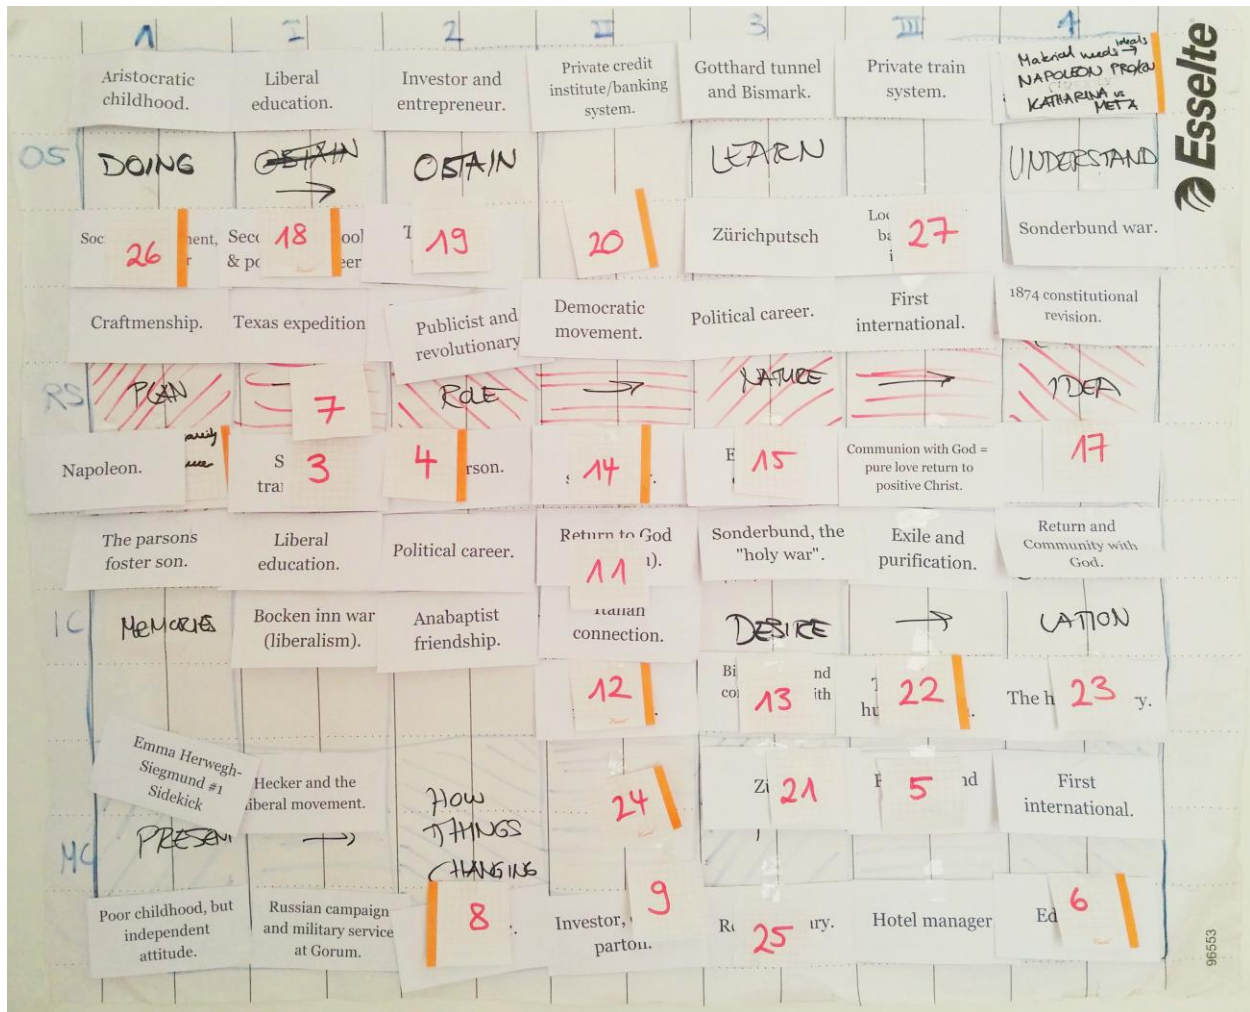 1 I 2 II 3 III 4
Aristocratic
childhood.
Liberal
education.
Investor and
entrepreneur.
Private credit
institute/banking
system.
Gotthard tunnel
and Bismark.
Private train
system.
Material needs → ideals
NAPOLEON
KATHARINA vs
META
Esselte
OS
DOING
OBTAIN
→
OBTAIN
LEARN
UNDERSTAND
Soc
26
nent,
r
Seco
18
ool
& po
eer
T
19
20
Zürichputsch
Loc
ba
i
27
Sonderbund war.
Craftmenship.
Texas expedition
Publicist and
revolutionary
Democratic
movement.
Political career.
First
international.
1874 constitutional
revision.
RS
PLAN
7
ROLE
→
NATURE
→
IDEA
Napoleon.
S
trai
3
4
rson.
14
E
15
Communion with God =
pure love return to
positive Christ.
17
The parsons
foster son.
Liberal
education.
Political career.
Return to God
1).
11
Sonderbund, the
"holy war".
Exile and
purification.
Return and
Community with
God.
IC
MEMORIES
Bocken inn war
(liberalism).
Anabaptist
friendship.
Italian
connection.
DESIRE
→
LATION
12
Bi
nd
co
ith
13
T
hu
22
The h
23
y.
Emma Herwegh-
Siegmund #1
Sidekick
Hecker and the
liberal movement.
24
Zi
21
5
nd
First
international.
MC
PRESENT
→
HOW
THINGS
CHANGING
Poor childhood, but
independent
attitude.
Russian campaign
and military service
at Gorum.
8
Investor,
9
parton.
Re
25
ury.
Hotel manager
Ed
6
96553